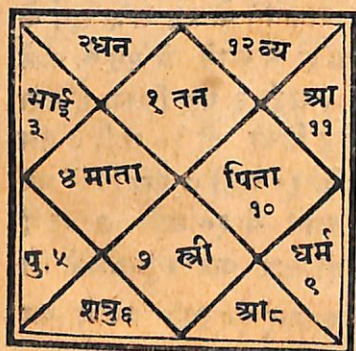 २धन
१२व्य
भाई
३
१ तन
आ
११
४ माता
पिता
१०
पु. ५
७ स्त्री
धर्म
९
शत्रु६
आ८